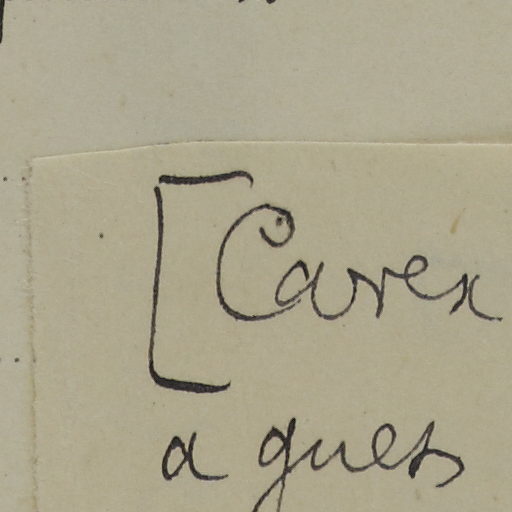 [Carex
a guess